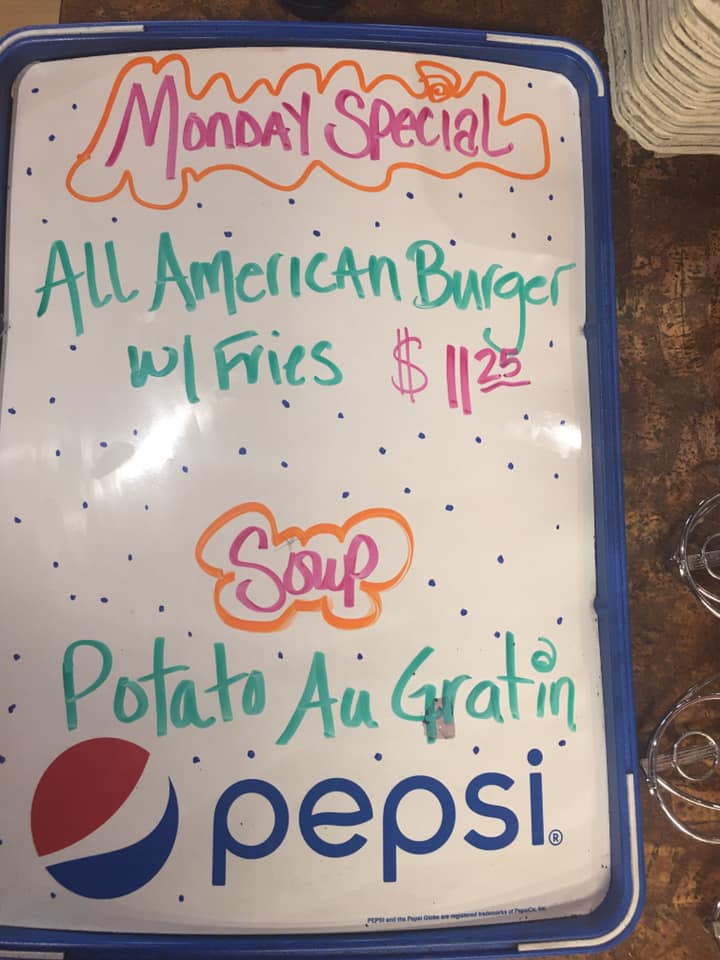 Monday Special
All American Burger
w/ Fries $11.25
Soup
Potato Au Gratin
pepsi®
PEPSI and the Pepsi Globe are registered trademarks of PepsiCo, Inc.